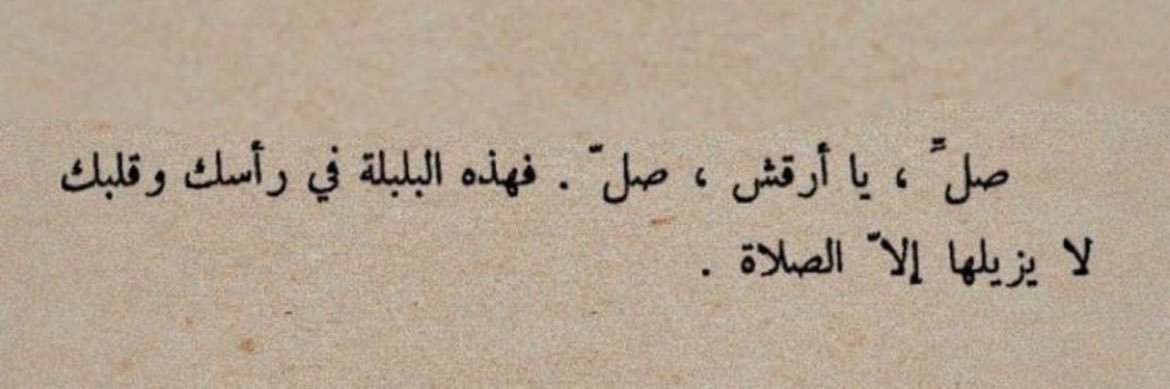 صلًّ ، يا أرقش ، صلّ . فهذه البلبلة في رأسك وقلبك
لا يزيلها إلاّ الصلاة .